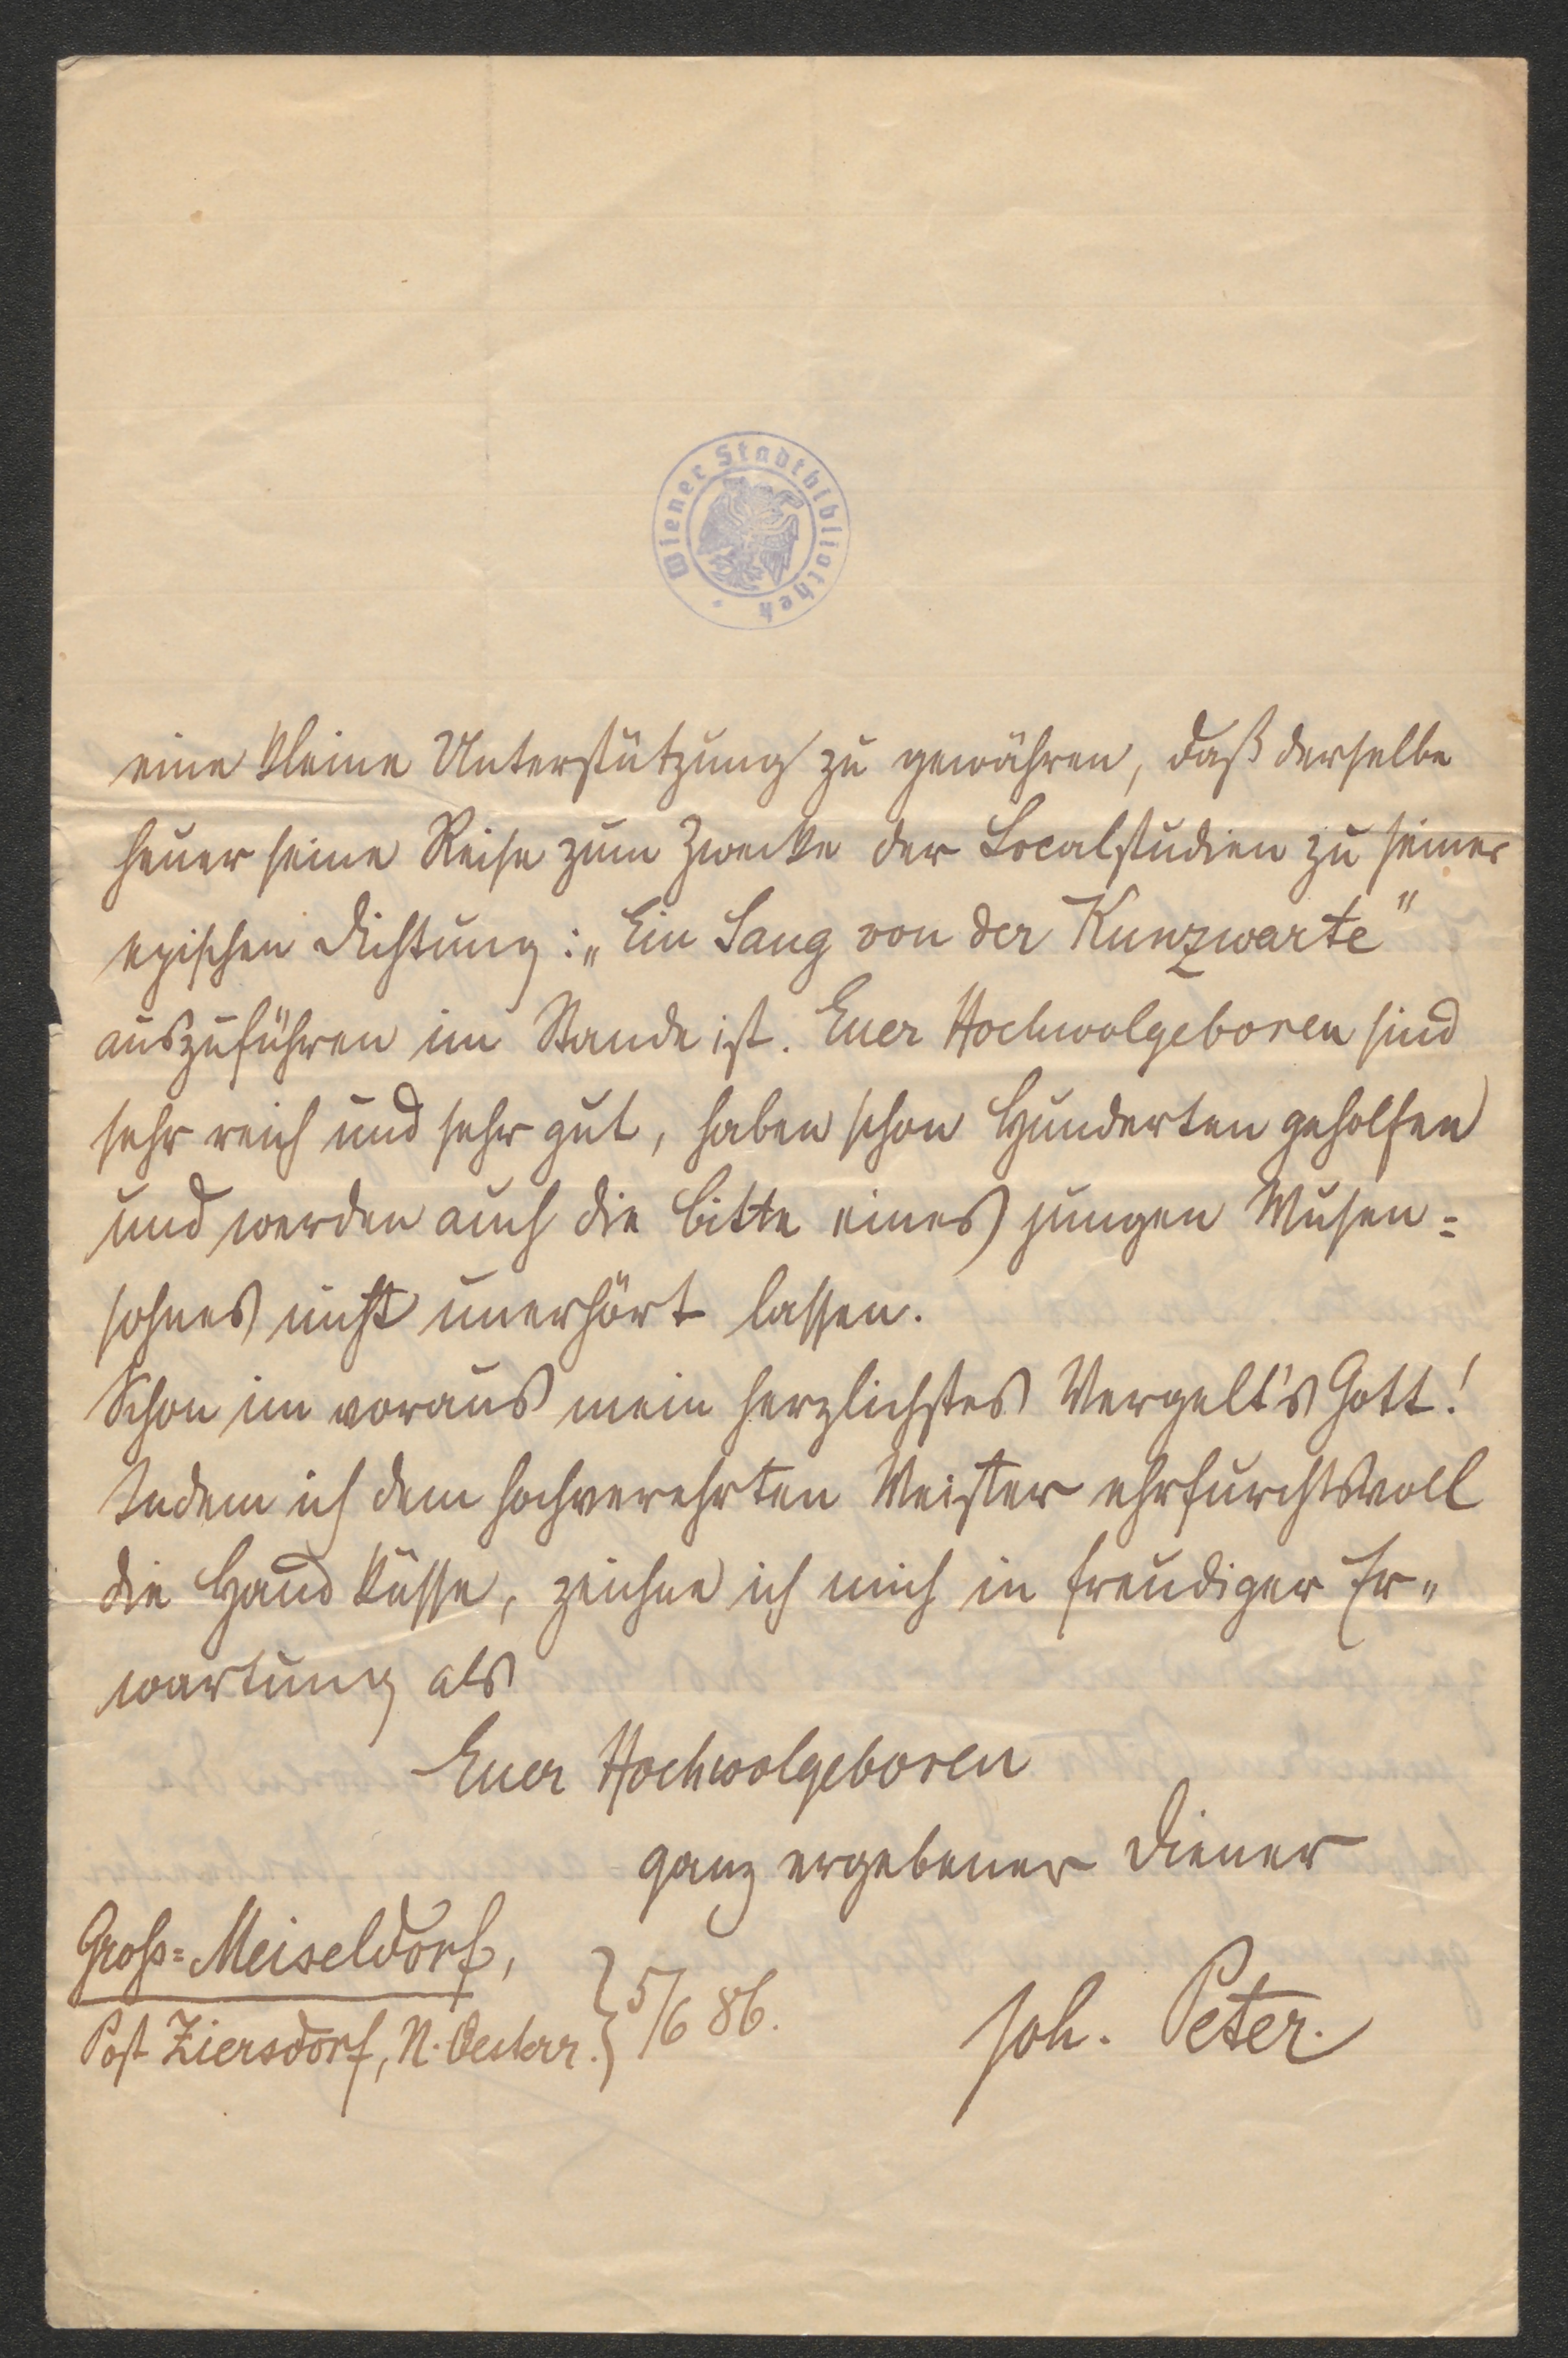 Wiener Stadtbibliothek
eine kleine Unterstützung zu gewähren, daß derselbe
heuer seine Reise zum Zwecke der Localstudien zu seiner
epischen Dichtung: „Ein Sang von der Kunzwarte"
auszuführen im Stande ist. Euer Hochwolgeboren sind
sehr reich und sehr gut, haben schon Hunderten geholfen
und werden auch die Bitte eines jungen Musen=
sohnes nicht unerhört lassen.
Schon im voraus mein herzlichstes Vergelt's Gott!
Indem ich dem hochverehrten Meister ehrfurchtsvoll
die Hand küsse, zeichne ich mich in freudiger Er„
wartung als
Euer Hochwolgeboren
ganz ergebener Diener
Groß=Meiseldorf,
Post Ziersdorf, N. Oesterr. } 5/6 86.
Joh. Peter.